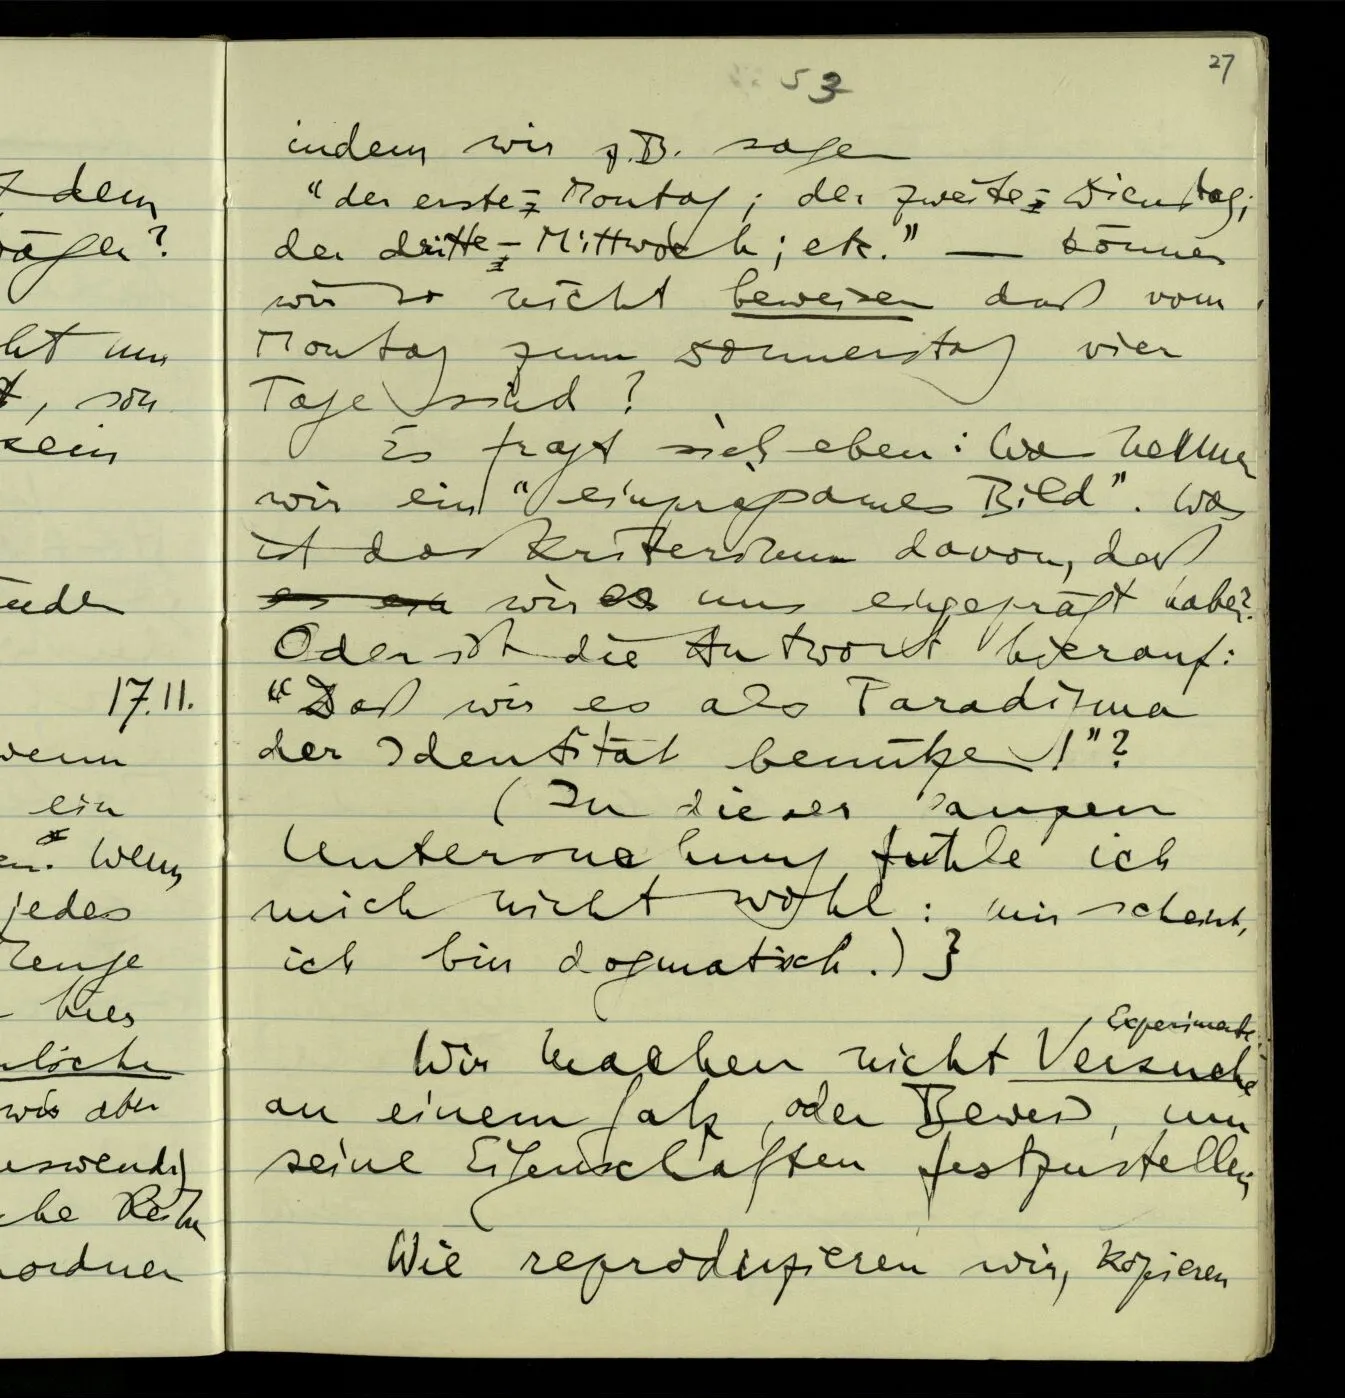 27
53
indem wir z.B. sagen
"der erste - Montag; der zweite - Dienstag;
der dritte - Mittwoch; etc." — können
wir so nicht beweisen daß vom
Montag zum Donnerstag vier
Tage sind?
Es fragt sich eben: Was nennen
wir ein "einprägsames Bild". Was
ist das Kriterium davon, daß
wir es uns eingeprägt haben?
Oder ist die Antwort hierauf:
"Daß wir es als Paradigma
der Identität benützen!"?
(In dieser ganzen
Untersuchung fühle ich
mich nicht wohl: mir scheint,
ich bin dogmatisch.) }
Experimente
Wir machen nicht Versuche
an einem Satz, oder Beweis, um
seine Eigenschaften festzustellen
Wie reproduzieren wir, kopieren
dem
?
um
sein
17.11.
wenn
ein
Wenn
jedes
Menge
hier
wir aber
ordnen